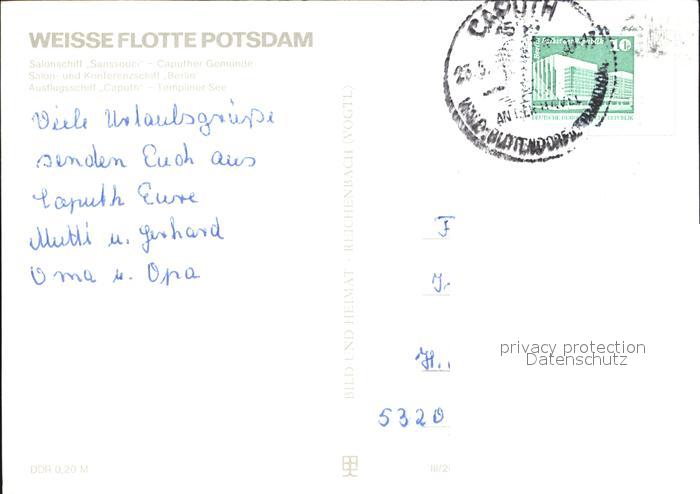 WEISSE FLOTTE POTSDAM
Salonschiff „Sanssouci“ – Caputher Gemünde
Salon- und Konferenzschiff „Berlin“
Ausflugsschiff „Caputh“ – Templiner See
Viele Urlaubsgrüße
senden Euch aus
Caputh Eure
Mutti u. Gerhard
Oma u. Opa
BILD UND HEIMAT · REICHENBACH (VOGTL)
CAPUTH
AN DER HAVEL
10
DEUTSCHE DEMOKRATISCHE REPUBLIK
F
J.
H.
5320
privacy protection
Datenschutz
DDR 0,20 M
III/2